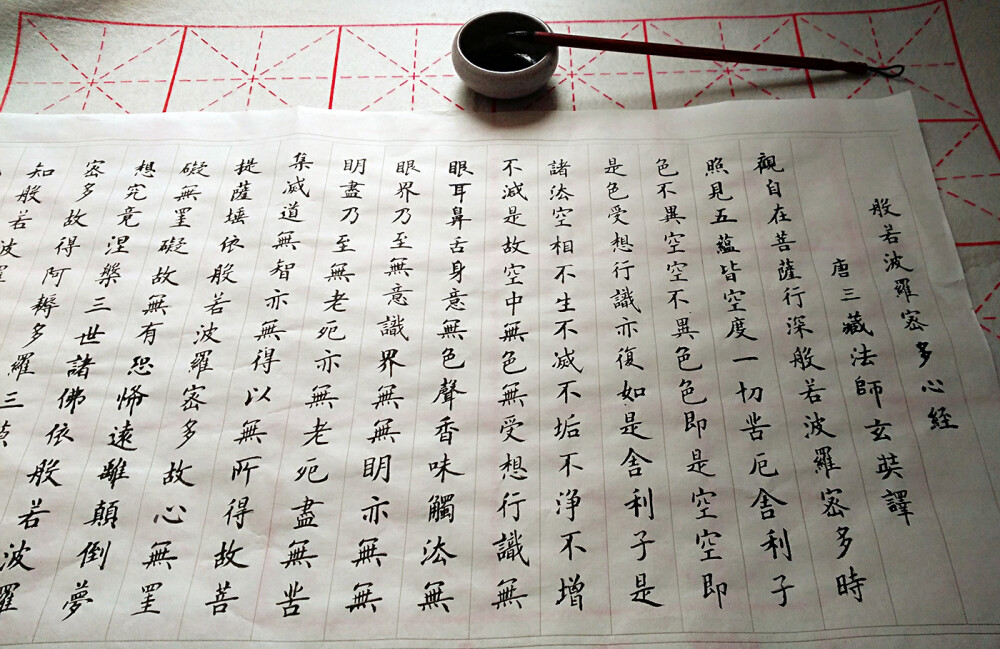 般若波羅密多心經
唐三藏法師玄奘譯
觀自在菩薩行深般若波羅密多時
照見五蘊皆空度一切苦厄舍利子
色不異空空不異色色即是空空即
是色受想行識亦復如是舍利子是
諸法空相不生不滅不垢不淨不增
不減是故空中無色無受想行識無
眼耳鼻舌身意無色聲香味觸法無
眼界乃至無意識界無無明亦無無
明盡乃至無老死亦無老死盡無苦
集滅道無智亦無得以無所得故菩
提薩埵依般若波羅密多故心無罣
礙無罣礙故無有恐怖遠離顛倒夢
想究竟涅槃三世諸佛依般若波羅
密多故得阿耨多羅三
知般若波